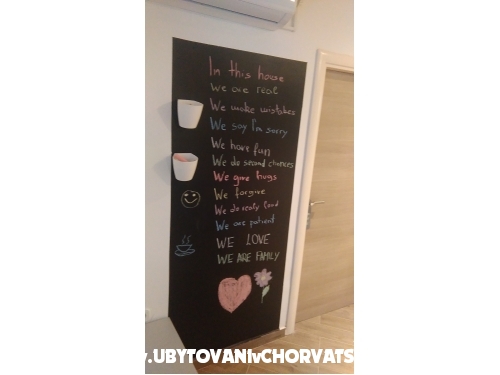 In this house
We are real
We make mistakes
We say I'm sorry
We have fun
We do second chances
We give hugs
We forgive
We do really loud
We are patient
WE LOVE
WE ARE FAMILY
.UBYTOVANIvCHORVATS